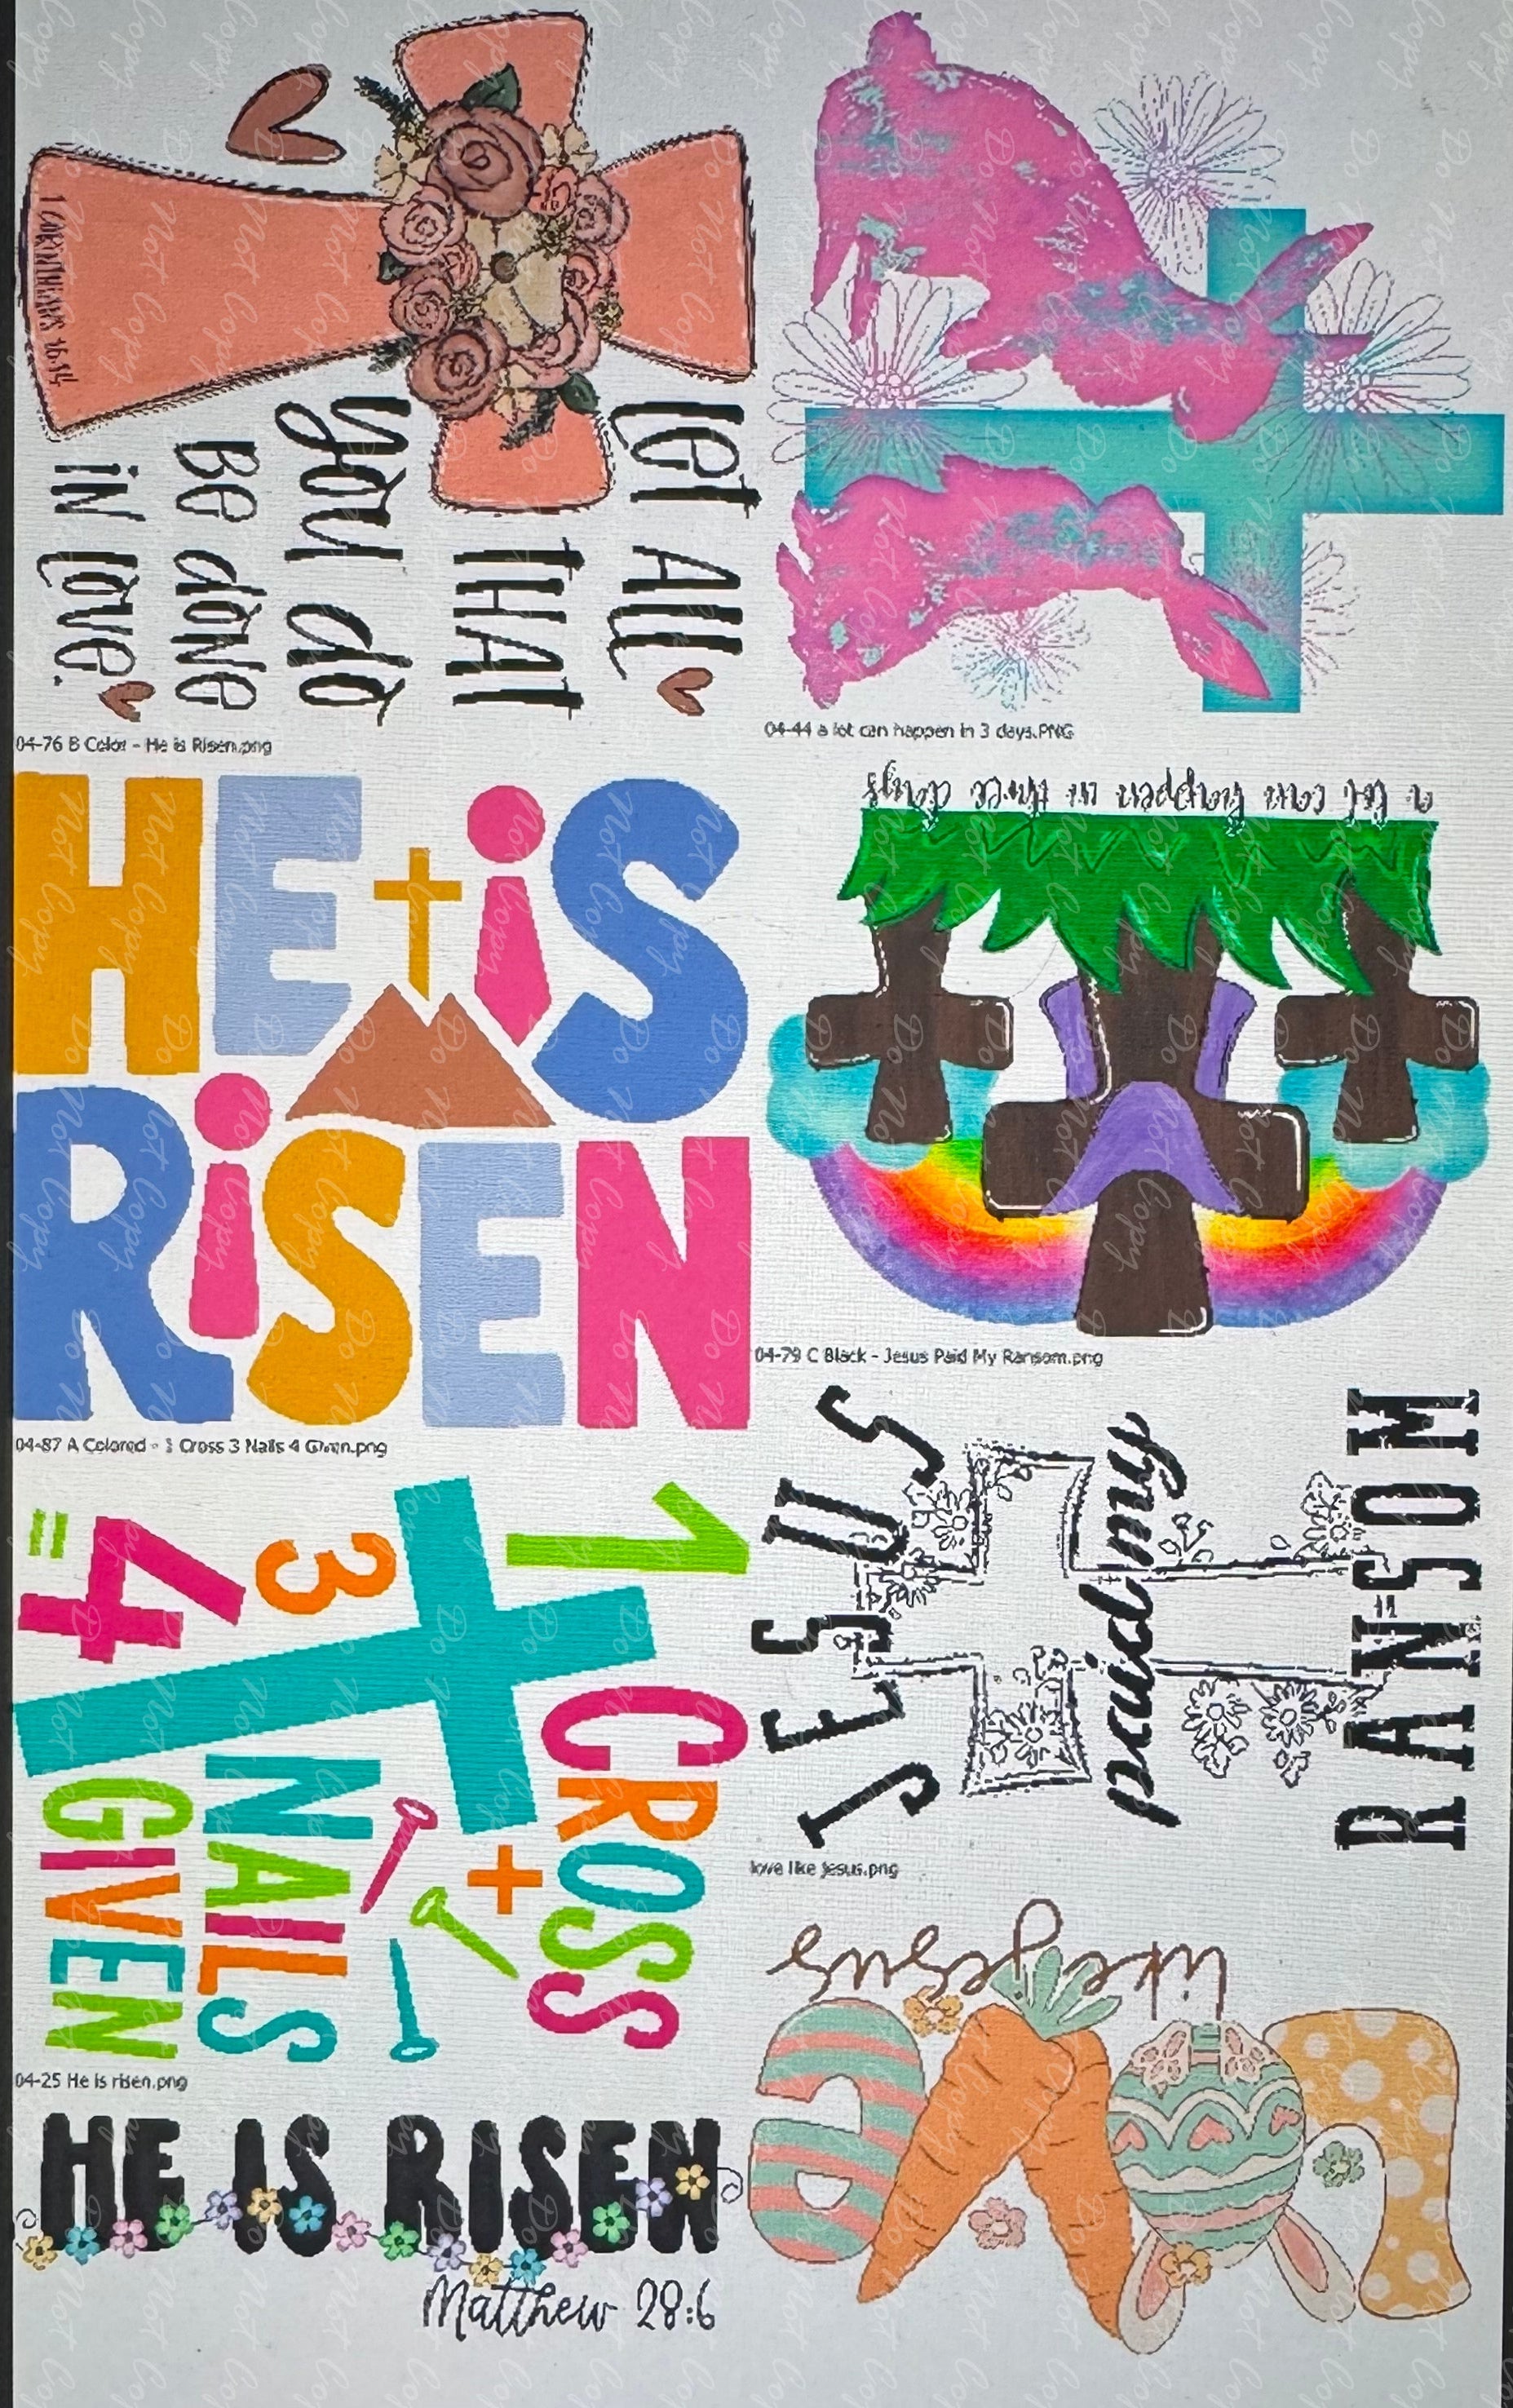 1 CORINTHIANS 16:14
let All
THAT
you do
Be done
in love.
04-76 B Color - He is Risen.png
04-44 a lot can happen in 3 days.PNG
HE iS
RiSEN
a lot can happen in three days
04-87 A Colored - 1 Cross 3 Nails 4 Given.png
04-79 C Black - Jesus Paid My Ransom.png
1 CROSS
+
3 NAILS
=
4 GIVEN
JESUS
paid my
RANSOM
04-25 He is risen.png
love like jesus.png
HE IS RISEN
Matthew 28:6
LOVE
like jesus
Do Not Copy